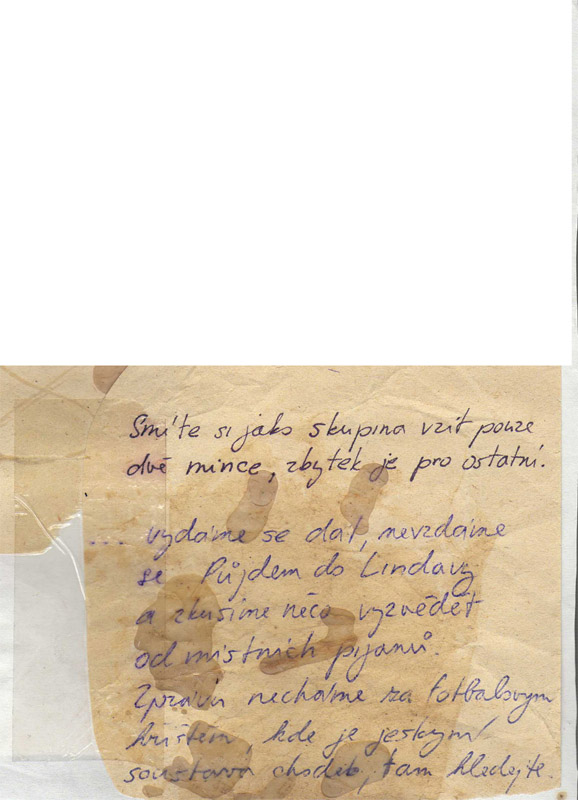 Smíte si jako skupina vzít pouze
dvě mince, zbytek je pro ostatní.
... vydáme se dál, nevzdáme
se Půjdem do Lindavy
a zkusíme něco vyzvědět
od místních pijanů.
Zprávu necháme za fotbalovym
hrištěm, kde je jeskyní
soustava chodeb, tam hledejte.